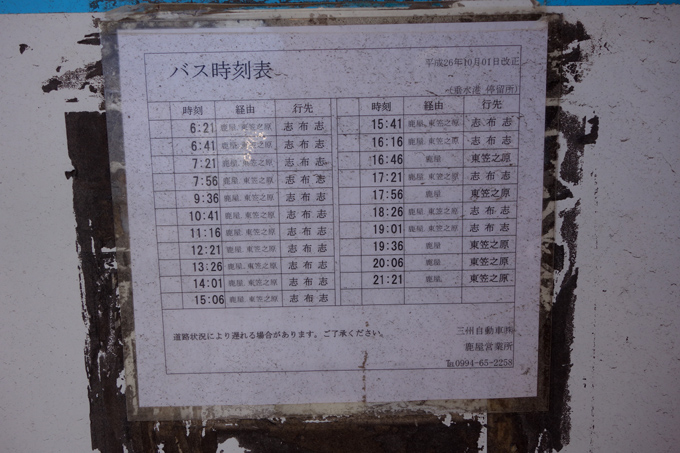 バス時刻表
平成26年10月01日改正
(垂水港 停留所)
時刻 経由 行先
6:21 鹿屋、東笠之原 志布志
6:41 鹿屋、東笠之原 志布志
7:21 鹿屋、東笠之原 志布志
7:56 鹿屋、東笠之原 志布志
9:36 鹿屋、東笠之原 志布志
10:41 鹿屋、東笠之原 志布志
11:16 鹿屋、東笠之原 志布志
12:21 鹿屋、東笠之原 志布志
13:26 鹿屋、東笠之原 志布志
14:01 鹿屋、東笠之原 志布志
15:06 鹿屋、東笠之原 志布志
時刻 経由 行先
15:41 鹿屋、東笠之原 志布志
16:16 鹿屋、東笠之原 志布志
16:46 鹿屋 東笠之原
17:21 鹿屋、東笠之原 志布志
17:56 鹿屋 東笠之原
18:26 鹿屋、東笠之原 志布志
19:01 鹿屋、東笠之原 志布志
19:36 鹿屋 東笠之原
20:06 鹿屋 東笠之原
21:21 鹿屋 東笠之原
道路状況により遅れる場合があります。ご了承ください。
三州自動車㈱
鹿屋営業所
℡0994-65-2258